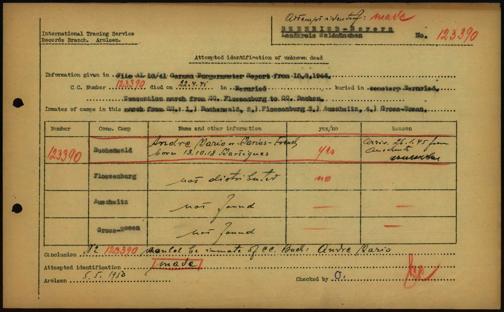 Attempt identif: made
International Tracing Service
Records Branch. Arolsen.
BERNRIED-Bayern
Landkreis
No. 123390
Attempted identification of unknown dead
Information given in File AL 10/41 German Burgermeister Report from
C.C. Number 123390 died on 22.4.45 in Bernried buried in cemetery Bernried,
Evacuation march from CC. Flossenburg to CC. Dachau.
Inmates of camps in march from CC: 1.) Buchenwald, 2.) Flossenburg 3.) Auschwitz, 4.) Gross-Rosen.
Number Conc. Camp Name and other information yes/no Reason
123390 Buchenwald André Mario French born 13.10.18 yes arriv. 26.1.45 from Auschwitz
Flossenburg not distributed no
Auschwitz not found —
Gross-Rosen not found —
Conclusion Nr 123390 inmate of CC Buch: André Mario
Attempted identification made
Arolsen 5.5.1950 Checked by